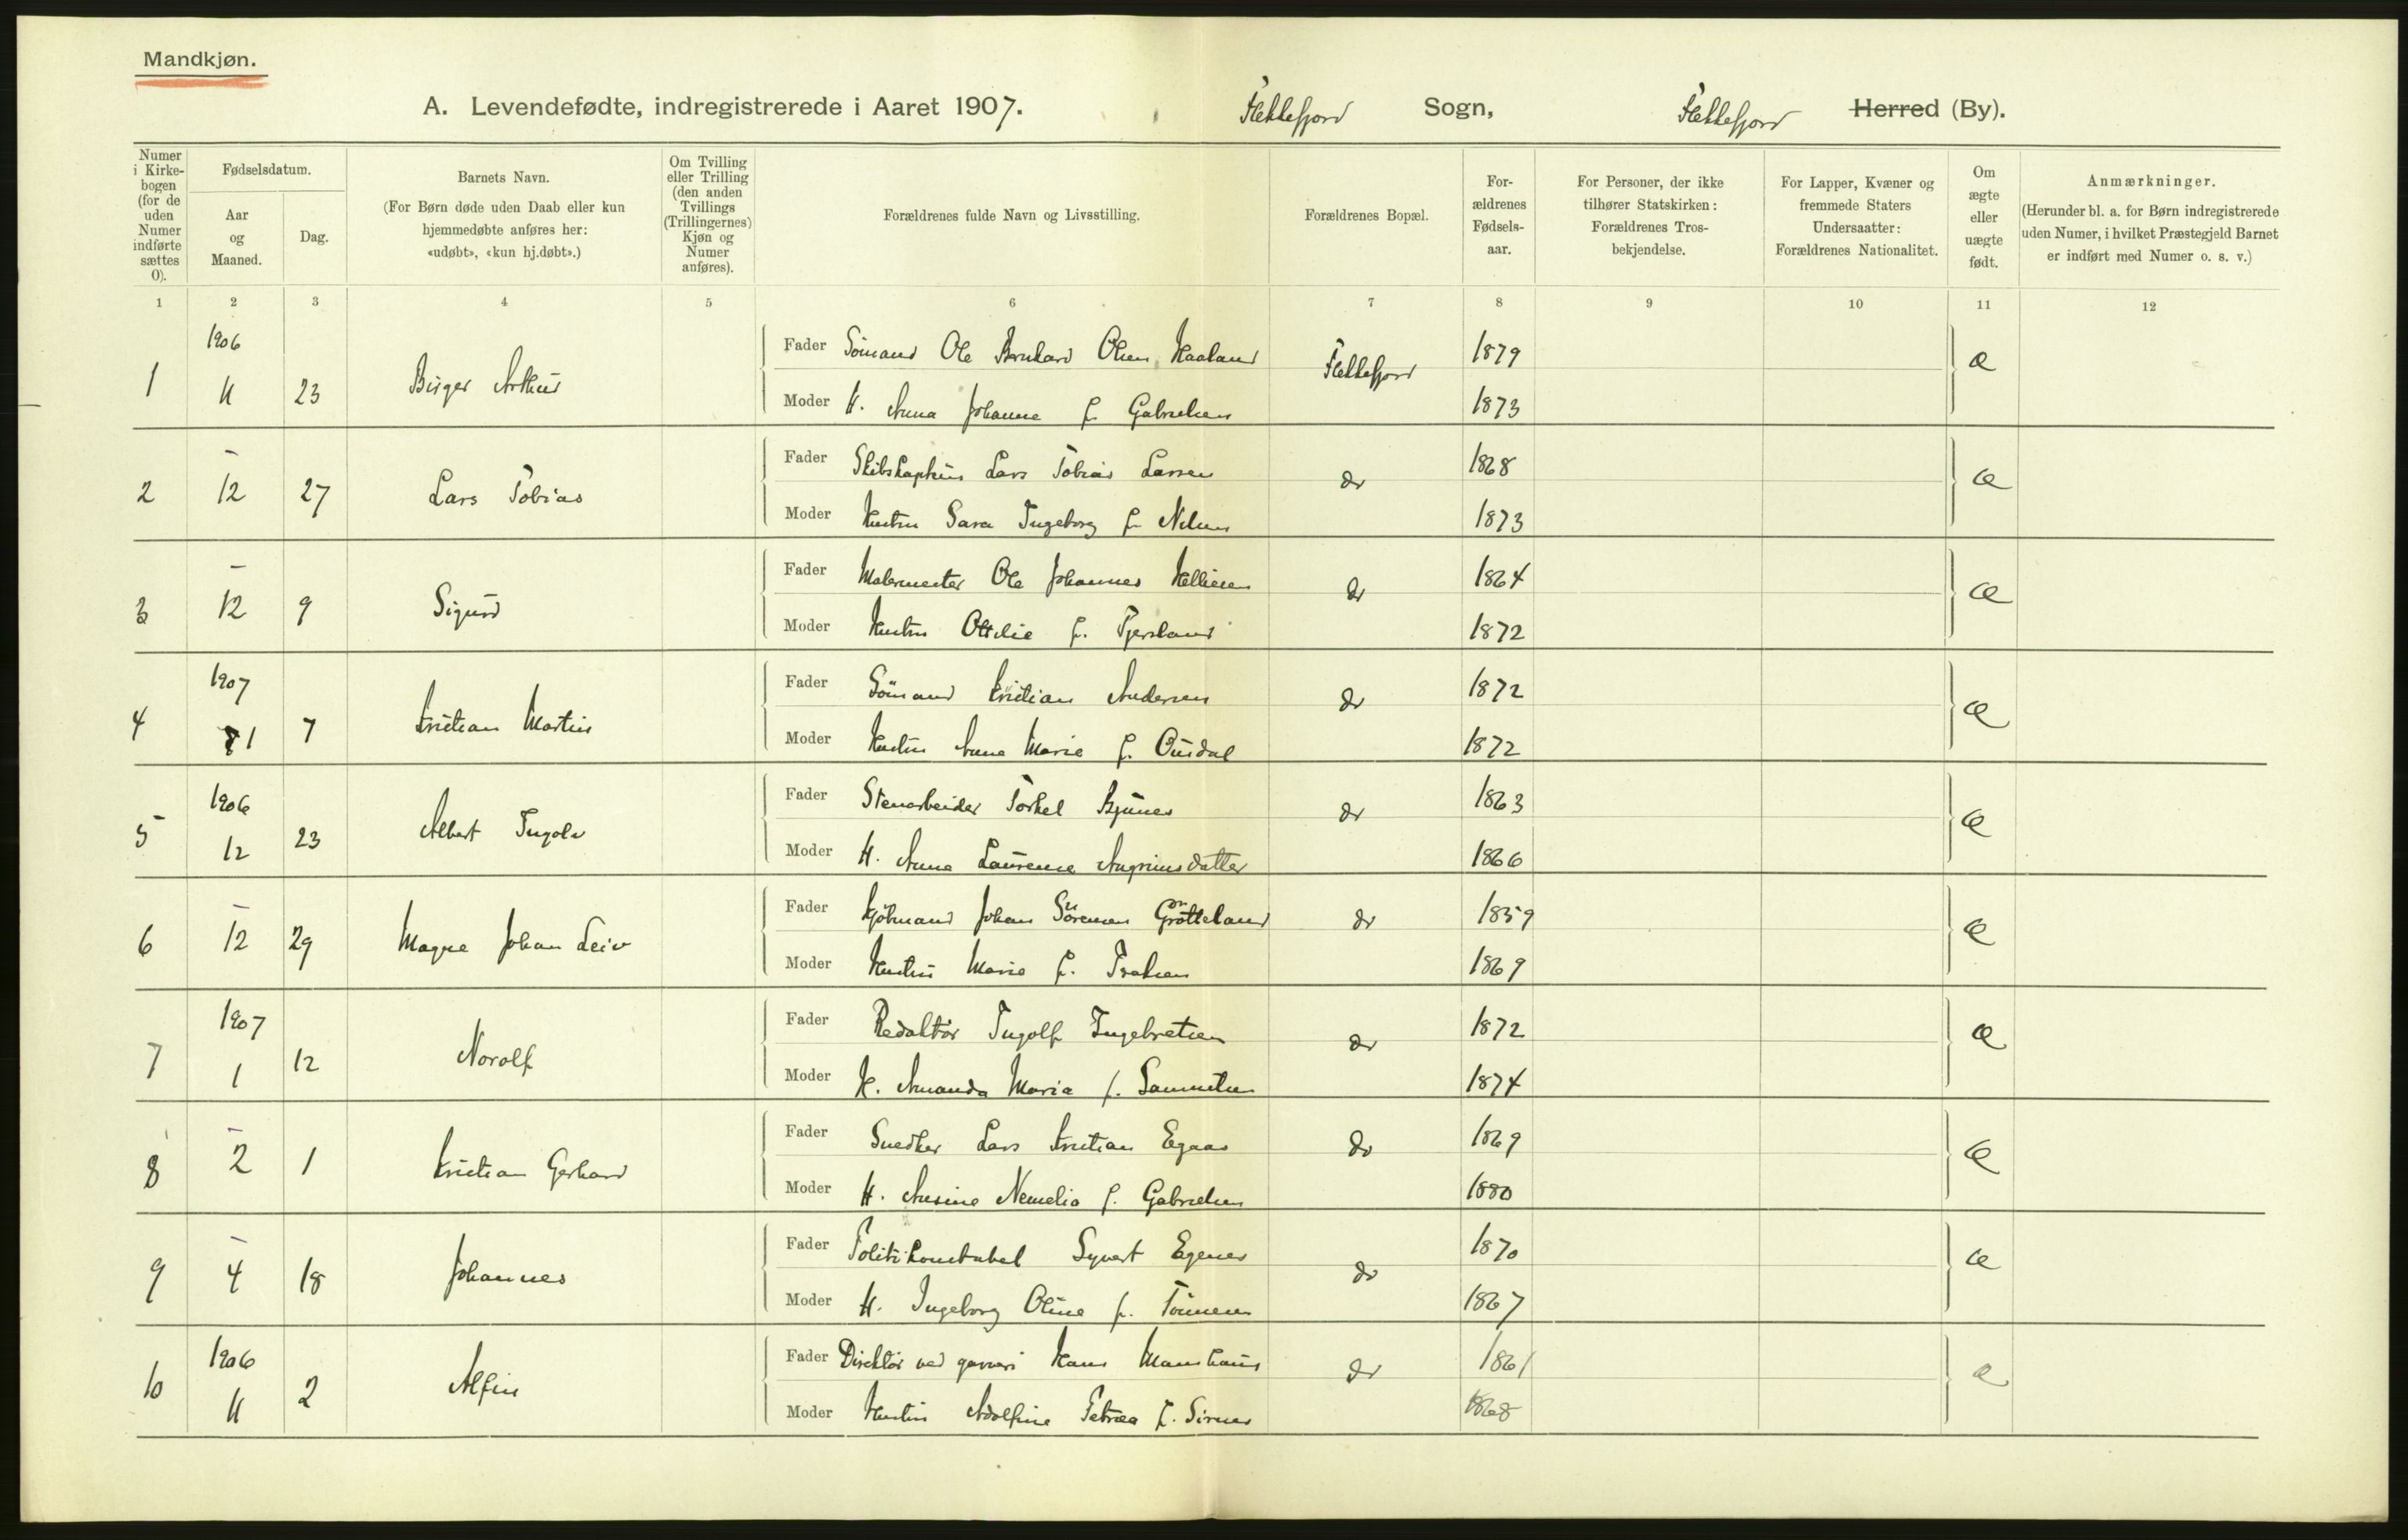 Mandkjøn.
A. Levendefødte, indregistrerede i Aaret 1907. Flekkefjord Sogn, Flekkefjord Herred (By).
Numer i Kirkebogen (for de uden Numer indførte sættes 0).
Fødselsdatum.
Aar og Maaned.
Dag.
Barnets Navn.
(For Børn døde uden Daab eller kun hjemmedøbte anføres her: «udøbt», «kun hj.døbt».)
Om Tvilling eller Trilling (den anden Tvillings (Trillingernes) Kjøn og Numer anføres).
Forældrenes fulde Navn og Livsstilling.
Forældrenes Bopæl.
Forældrenes Fødselsaar.
For Personer, der ikke tilhører Statskirken: Forældrenes Trosbekjendelse.
For Lapper, Kvæner og fremmede Staters Undersaatter: Forældrenes Nationalitet.
Om ægte eller uægte født.
Anmærkninger.
(Herunder bl. a. for Børn indregistrerede uden Numer, i hvilket Præstegjeld Barnet er indført med Numer o. s. v.)
1 2 3 4 5 6 7 8 9 10 11 12
1 1906 11 23 Birger Arthur Fader Sömand Ole Bernhard Olsen Haaland Flekkefjord 1879 æ
Moder H. Anna Johanne f. Gabrielsen 1873
2 – 12 27 Lars Tobias Fader Skibskaptein Lars Tobias Larsen do 1868 æ
Moder Hustru Sara Ingeborg f. Nilsen 1873
3 – 12 9 Sigurd Fader Malermester Ole Johannes do 1864 æ
Moder Hustru Ottilie f. Tjersland 1872
4 1907 1 7 Kristian Martin Fader Sömand Kristian Andersen do 1872 æ
Moder Hustru Anna Marie f. Ousdal 1872
5 1906 12 23 Albert Ingolv Fader Stenarbeider Torkel do 1863 æ
Moder H. Anna Laurense Angrimsdatter 1866
6 – 12 29 Magne Johan Leiv Fader Kjöbmand Johan Sörensen Grötteland do 1859 æ
Moder Hustru Marie f. 1869
7 1907 1 12 Norolf Fader Redaktör Ingolf Ingebretsen do 1872 æ
Moder H. Amanda Maria f. Samuelsen 1874
8 – 2 1 Kristian Gerhard Fader Snedker Lars Kristian Egaas do 1869 æ
Moder H. f. Gabrielsen 1880
9 – 4 18 Johannes Fader Politikonstabel Syvert Egenes do 1870 æ
Moder H. Ingeborg Oline f. Tönnesen 1867
10 1906 11 2 Alfin Fader Direktör ved garveri Hans do 1861 æ
Moder Hustru Adolfine Petrea f. Sirnes 1868